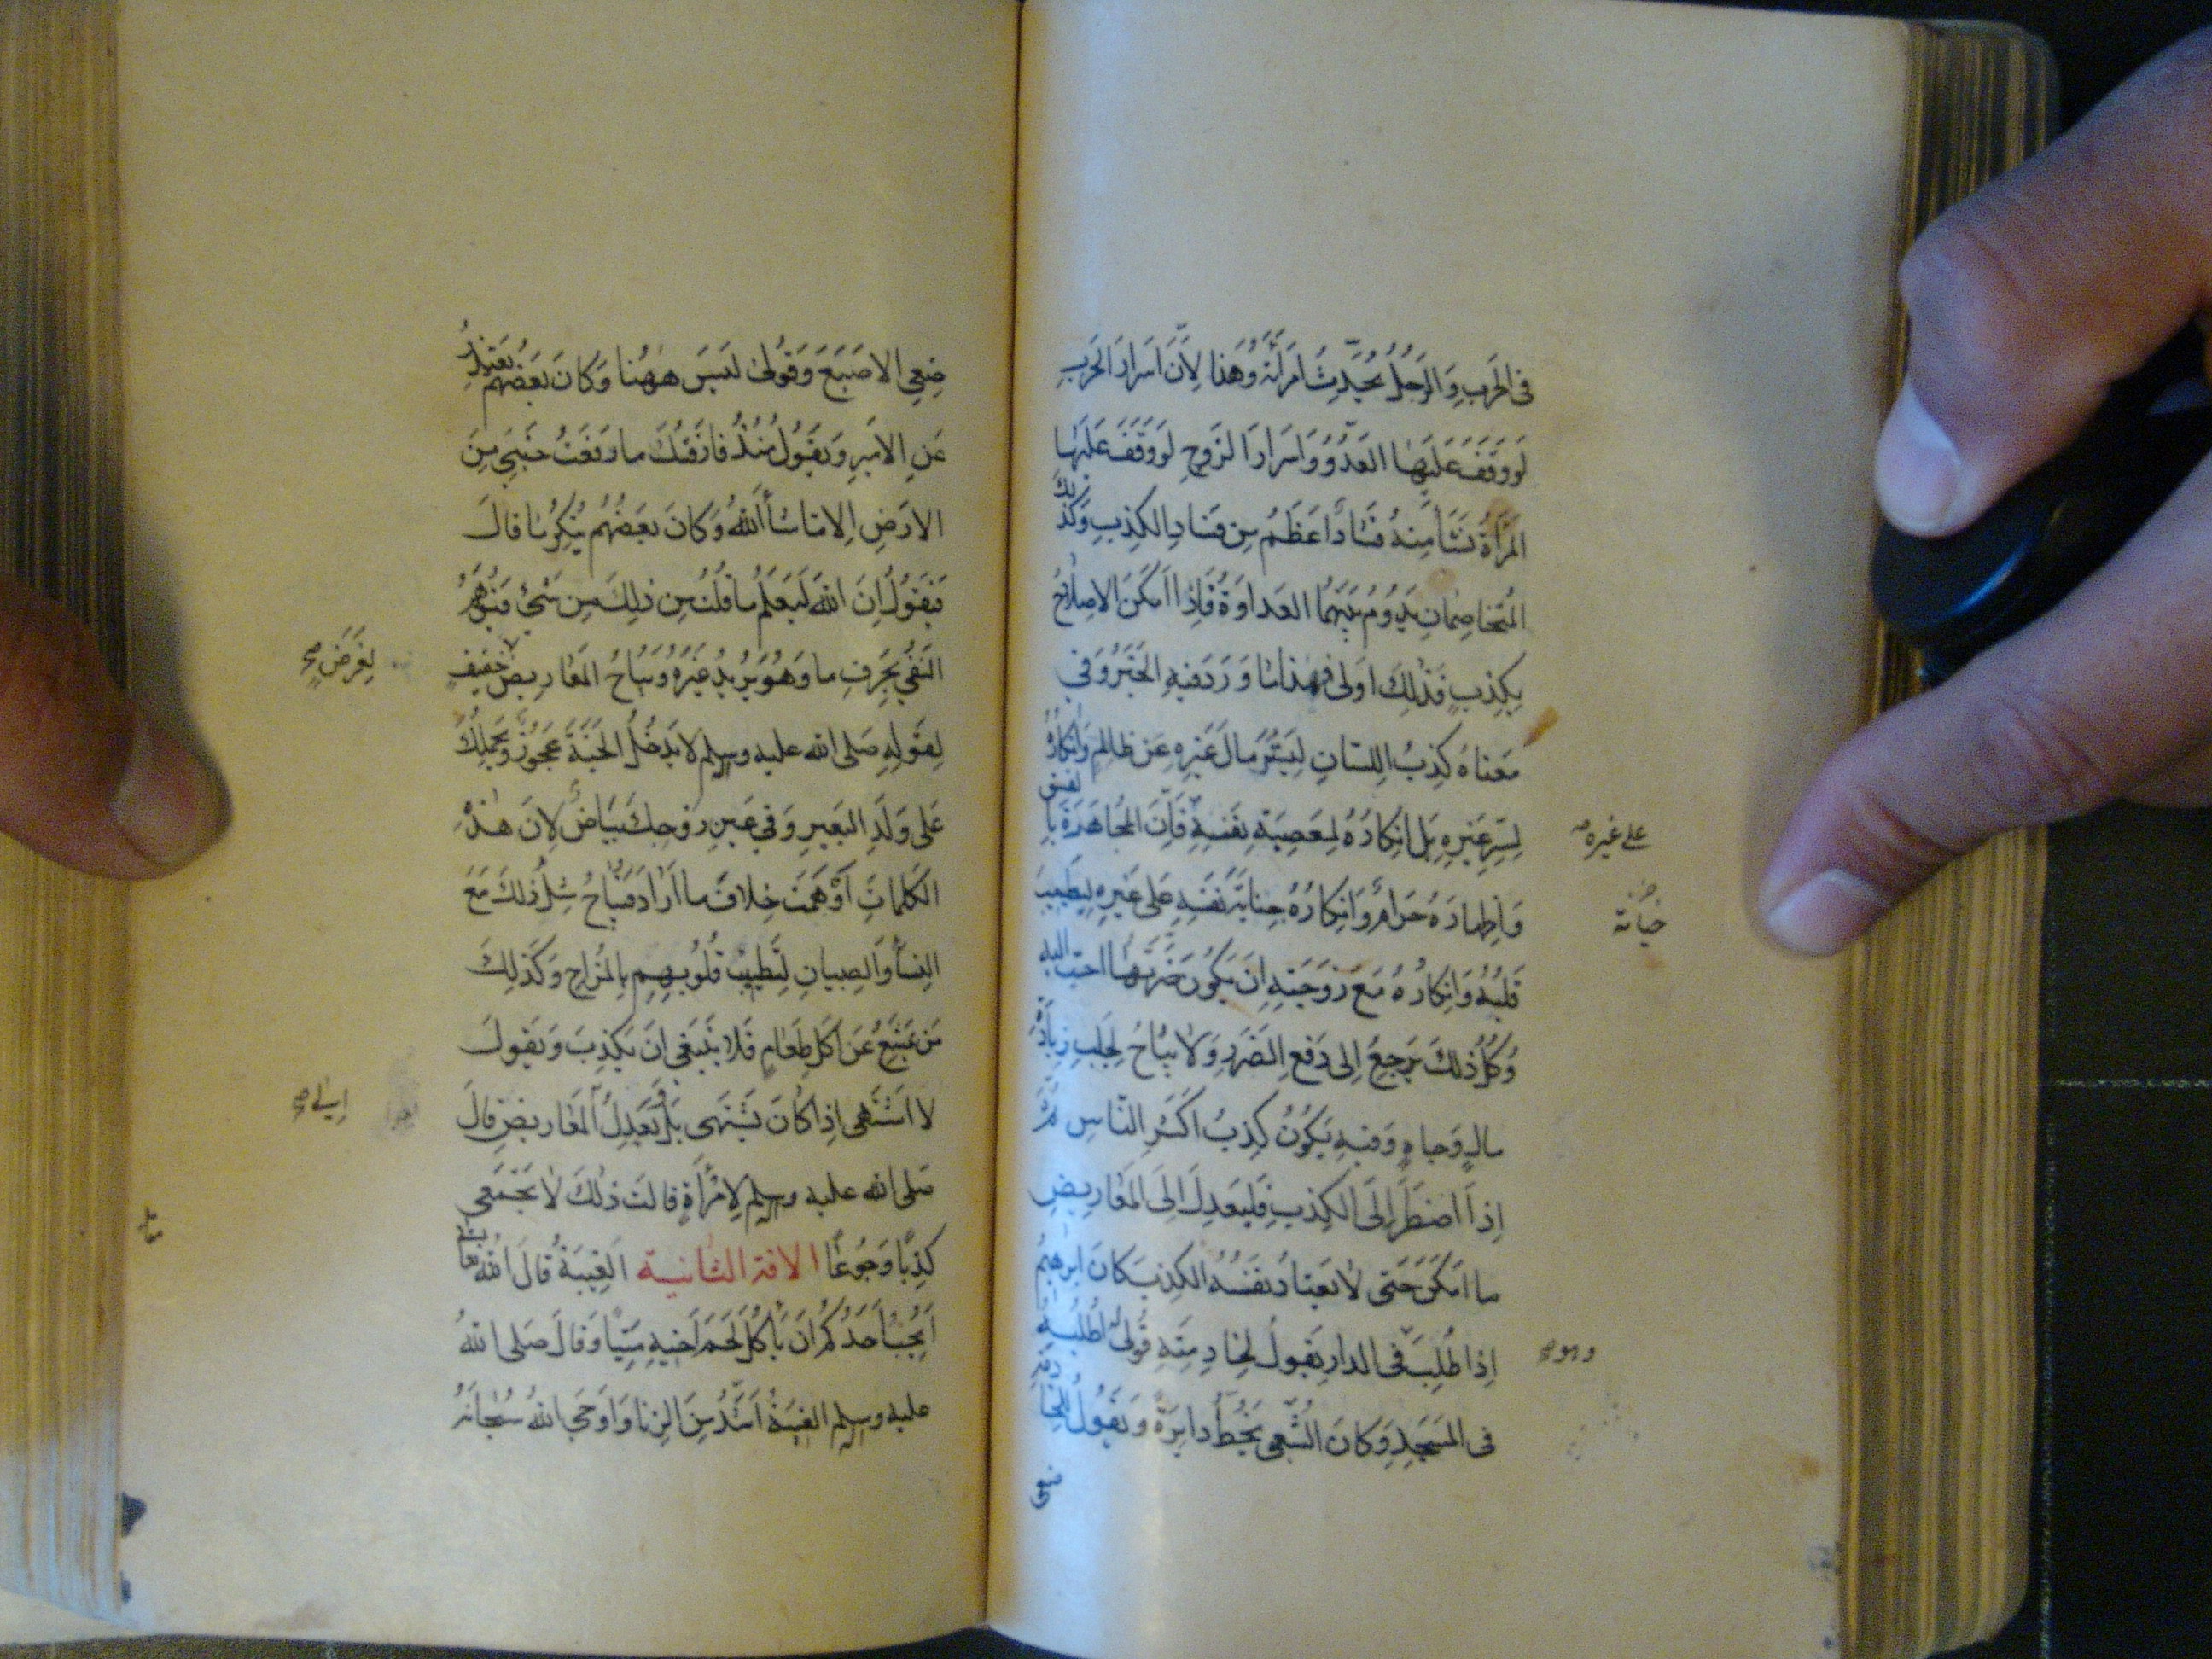 في الحَربِ وَالرَجُلُ يُحَدِّثُ امرَأتَهُ وَهَذا لِأَنَّ اَسرَارَ الحَربِ
لَو وَقَفَ عَلَيهَا العَدُوُّ وَاَسرَارَ الزَوجِ لَو وَقَفَ عَلَيهَا
المَرأةُ نَشَأ مِنهُ فَسَادٌ اَعظَمُ مِن فَسَادِ الكِذبِ وَكَذلِكَ
المُتَخَاصِمَانِ يَدُومُ بَينَهُمَا العَداوَةُ فَاِذا اَمكَنَ الاِصلَاحُ
بِكِذبٍ فَذلِكَ اَولى فهذا ما وَرَدَ فيهِ الخَبَرُ وَفي
مَعناهُ كَذِبُ الاِنسَانِ لِيَستُرَ مالَ غَيرِهِ عَن ظالِمٍ وَاِنكارُهُ
لِسِرِّ غَيرِهِ بَل اِنكارُهُ لِمَعصِيَةِ نَفسِهِ فَاِنَّ المُجاهَرَةَ بِالفسق
على غيره صح
وَاِظهارَهُ حَرَامٌ وَاِنكارُهُ جِنايَةَ نَفسِهِ عَلى غَيرِهِ لِيَطيبَ
خيانة
قَلبُهُ وَاِنكارُهُ مَعَ زَوجَتِهِ اِن يَكُونَ ضَرَّتُهَا احبّ اليه
وَكُلُّ ذلِكَ يَرجِعُ اِلى دَفعِ الضَرَرِ وَلا يُباحُ لِجَلبِ زيادةِ
مالٍ وَجاهٍ وَفيهِ يَكُونُ كِذبُ اَكثَرِ النّاسِ ثمّ
اِذا اضطُرَّ اِلَى الكِذبِ فَليَعدِل اِلَى المَعَاريضِ
ما اَمكَنَ حَتّى لا يَعتادَ نَفسُهُ الكِذبَ كانَ ابرهيمُ
اِذا طُلِبَ في الدارِ يَقولُ لِخادِمَتِهِ قُولى لَهُ اُطلُبهُ
وهو صح
في المَسجِدِ وَكانَ الشَّعبى يَخُطُّ دايِرَةً وَيَقُولُ للخادمة
ضعى
ضِعِي الاصبَعَ وَقُولى لَيسَ ههُنا وَكانَ بَعضُهُم يَعتَذِرُ
عَنِ الاَميرِ وَيَقُولُ مُنذُ فارَقتُكَ ما رَفَعتُ جَنبي مِنَ
الاَرضِ اِلا ما شأَ اللهُ وَكانَ بَعضُهُم يُنكِرُ ما قالَ
فَيَقُولُ اِنَّ اللهَ لَيَعلَمُ ما قُلتُ مِن ذلِكَ مِن شَيءٍ فَيُوهِمُ
النَفيَ بِحَرفِ ما وَهُوَ يُريدُ غَيرَهُ وَيُباحُ المَعاريضُ خَفيفٍ
لِغَرَضٍ صح
لِقَولِهِ صَلى الله عليه وسلم لا يَدخُلُ الجَنَّةَ عَجُوزٌ وَنَحمِلُكِ
عَلى وَلَدِ البَعيرِ وَفي عَينِ زَوجِكِ بَيَاضٌ لِاَنَّ هذِهِ
الكَلِماتِ اَوهَمَت خِلافَ ما اَرادَ فَيُباحُ مِثلُ ذلِكَ مَعَ
النِسأِ وَالصِبيانِ لِتَطييبِ قُلُوبِهِم بِالمُزاحِ وَكَذلِكَ
مَن يَمتَنِعُ عَن اَكلِ طَعامٍ فَلا يَنبَغي اَن يَكذِبَ وَيَقولَ
لا اَشتَهى اِذا كانَ يَشتَهى بَل يَعدِلُ المَعاريضِ قالَ
اِلى صح
صَلى الله عليه وسلم لِامرَأةٍ قالَت ذلِكَ لا تَجمَعي
كِذبًا وَجُوعًا الافة الثانية الغيبَةُ قالَ اللهُ تعالى
اَيُحِبُّ اَحَدُكُم اَن يَأكُلَ لَحمَ اَخيهِ مَيتًا وَقالَ صَلى اللهُ
عليه وسلم الغيبَةُ اَشَدُّ مِنَ الزِنا وَاَوحَي اللهُ سُبحانَهُ